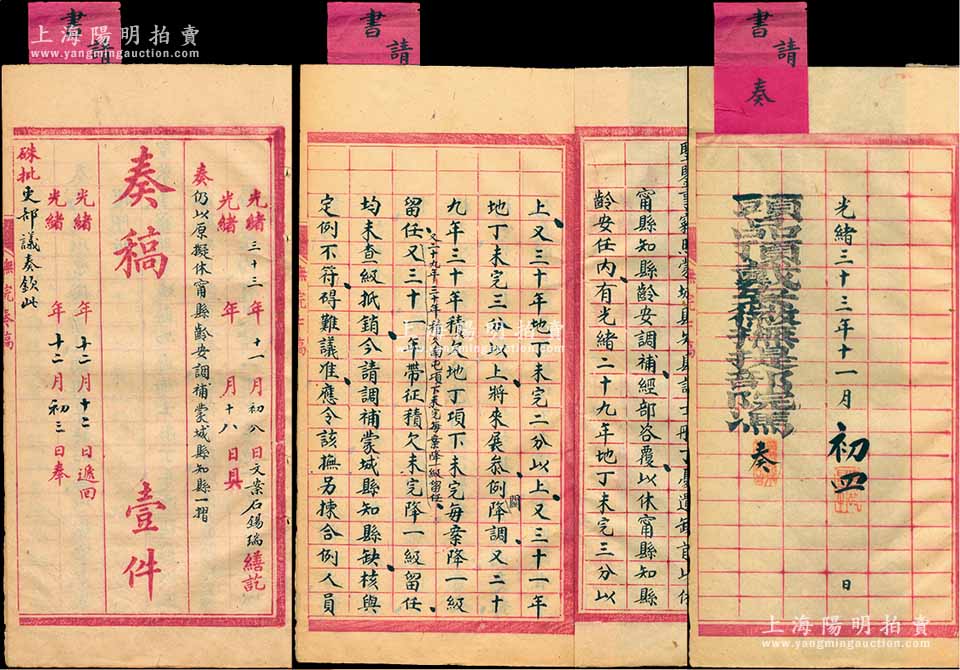 書請
書請
書請奏
上海陽明拍賣
www.yangmingauction.com
上海陽明拍賣
www.yangmingauction.com
上海陽明拍賣
www.yangmingauction.com
奏稿壹件
光緒三十三年十一月初八日文案石錫瑞繕訖
光緒年月十八日具
奏仍以原擬休甯縣齡安調補蒙城縣知縣一摺
光緒年十二月十二日遞回
光緒年十二月初三日奉
硃批吏部議奏欽此
撫院奏稿
光緒三十三年十一月初四日
奏
甯縣知縣齡安調補經部咨覆以休甯縣知縣
齡安任內有光緒二十九年地丁未完三分以
上又三十年地丁未完二分以上又三十一年
地丁未完三分以上將來展叅例降調又二十
九年三十年積欠地丁項下未完每案降一級
留任又三十一年帶征積欠未完降一級留任
均未查級抵銷今請調補蒙城縣知縣缺核與
定例不符碍難議准應令該撫另揀合例人員
上海陽明拍賣
www.yangmingauction.com
上海陽明拍賣
www.yangmingauction.com